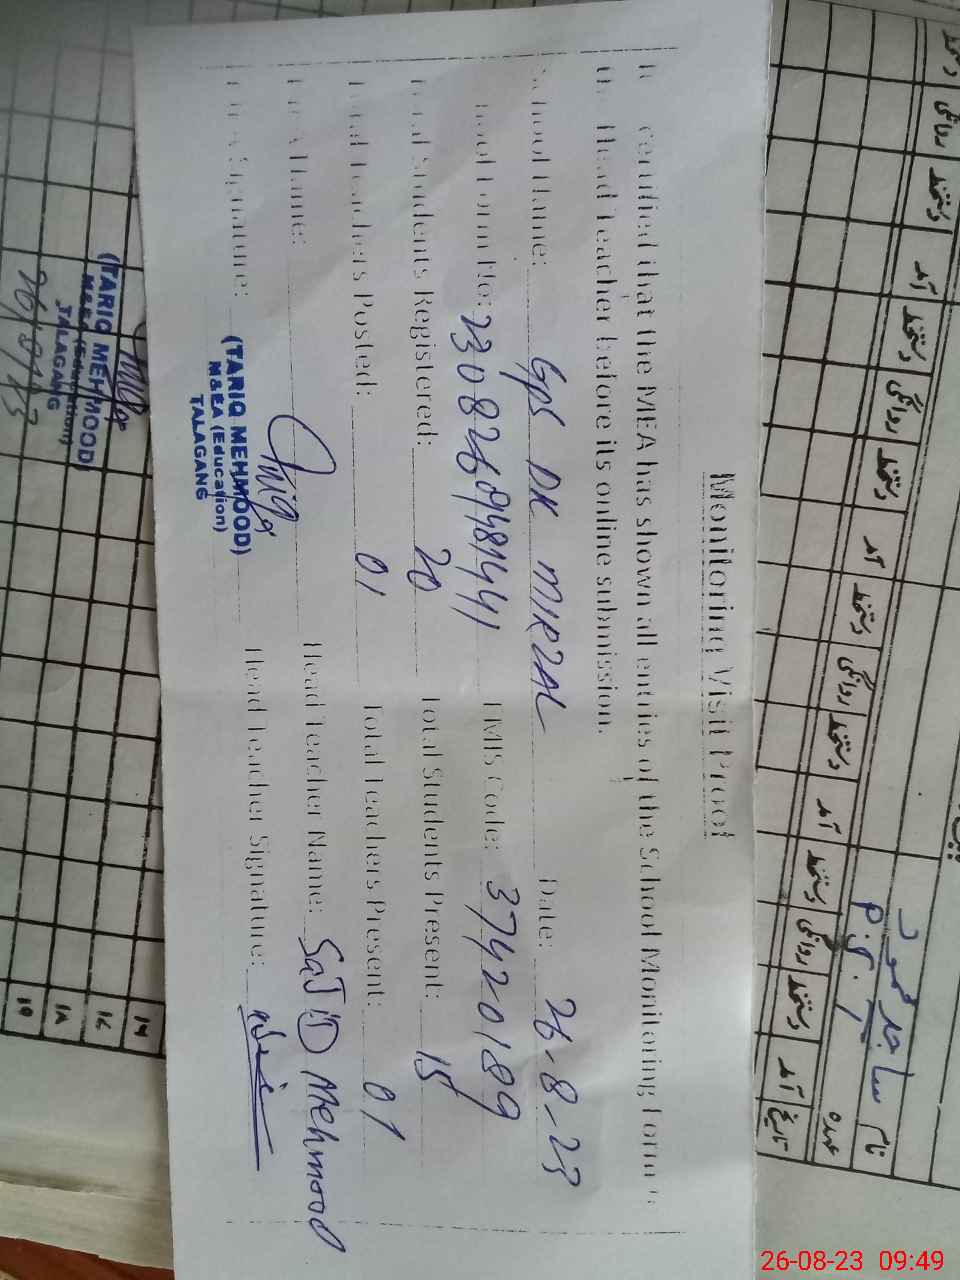 Monitoring Visit Proof
certified that the MEA has shown all entries of the School Monitoring Form
Head Teacher before its online submission.
School Name: GPS DK MIRZAL Date: 26-8-23
EMIS Code: 37420189
Total Students Registered: 20 Total Students Present: 15
Total Teachers Posted: 01 Total Teachers Present: 01
Name: Head Teacher Name: SaJiD Mehmood
Signature: Head Teacher Signature:
(TARIQ MEHMOOD)
M&EA (Education)
TALAGANG
(TARIQ MEHMOOD)
M&EA (Education)
TALAGANG
26/8/23
نام ساجد محمود
عہدہ P.S.T
تاریخ
آمد دستخط روانگی دستخط آمد دستخط روانگی دستخط آمد دستخط روانگی دستخط آمد دستخط روانگی دستخط
۱۶
۱۷
۱۸
۱۹
26-08-23 09:49